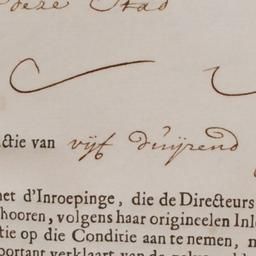 deze Stad
ctie van vijf duijzend
et d'Inroepinge, die de Directeurs
hooren, volgens haar origineelen Inl
tie op die Conditie aan te nemen, n